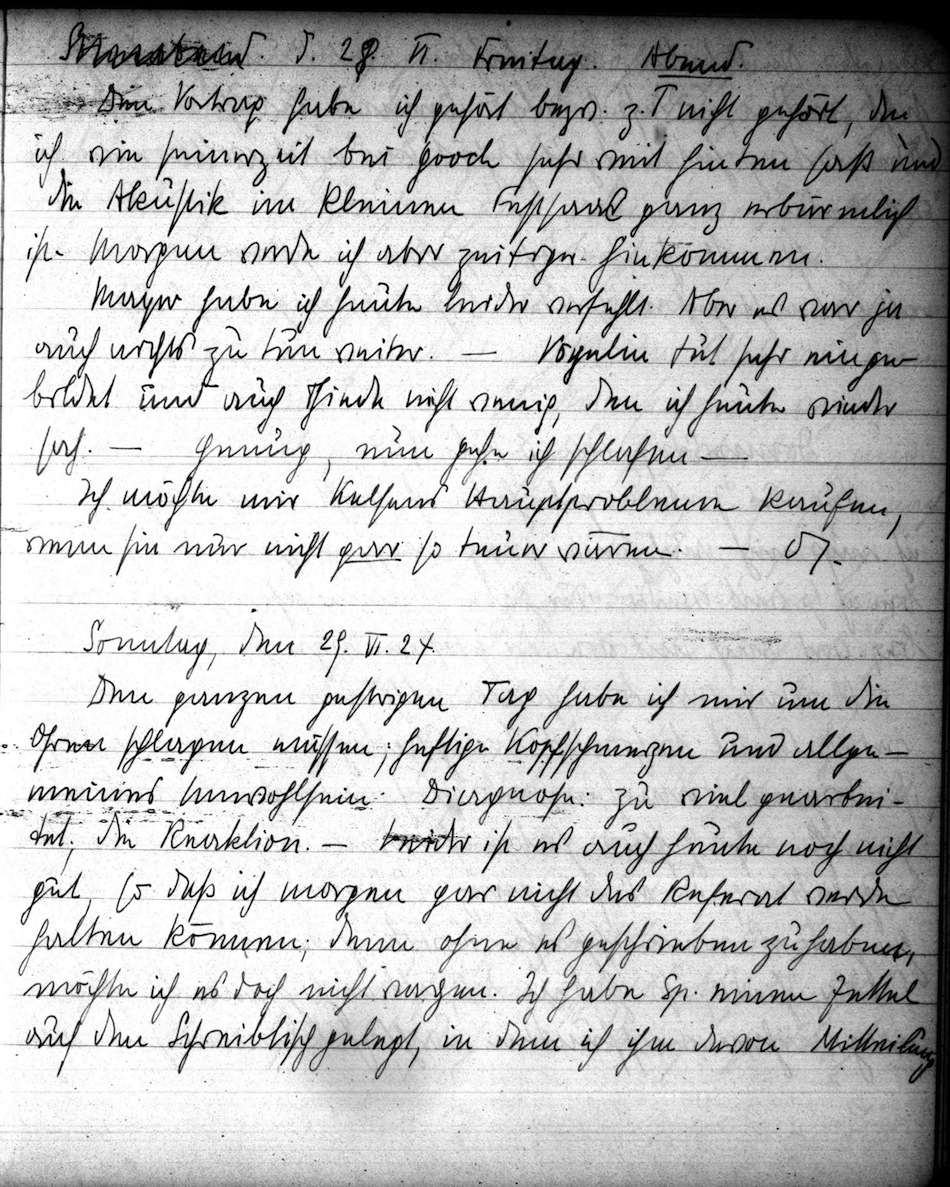 d. 28. VI. Freitag. Abend.
Den Vortrag habe ich gehört bezw. z. T nicht gehört, da
ich wie seinerzeit bei Gooch sehr weit hinten saß und
die Akustik im kleinen Festsaal ganz erbärmlich
ist. Morgen werde ich aber zeitiger hinkommen.
Mayer habe ich heute leider verfehlt. Aber es war ja
auch nichts zu tun weiter. — Vögelin tut sehr einge-
bildet und auch nicht wenig, den ich heute wieder
sah. — Genug, nun gehe ich schlafen —
Ich möchte mir Kelsens Hauptprobleme kaufen,
wenn sie nur nicht gar so teuer wären. —
Sonntag, den 29. VI. 24.
Den ganzen gestrigen Tag habe ich mir um die
Ohren schlagen müssen; heftige Kopfschmerzen und allge-
meines Unwohlsein: Diagnose: zu viel gearbei-
tet; die Reaktion. — Leider ist es auch heute noch nicht
gut, so daß ich morgen gar nicht das Referat werde
halten können; denn ohne es geschrieben zu haben,
möchte ich es doch nicht wagen. Ich habe Sp. einen Zettel
auf den Schreibtisch gelegt, in dem ich ihm davon Mitteilung